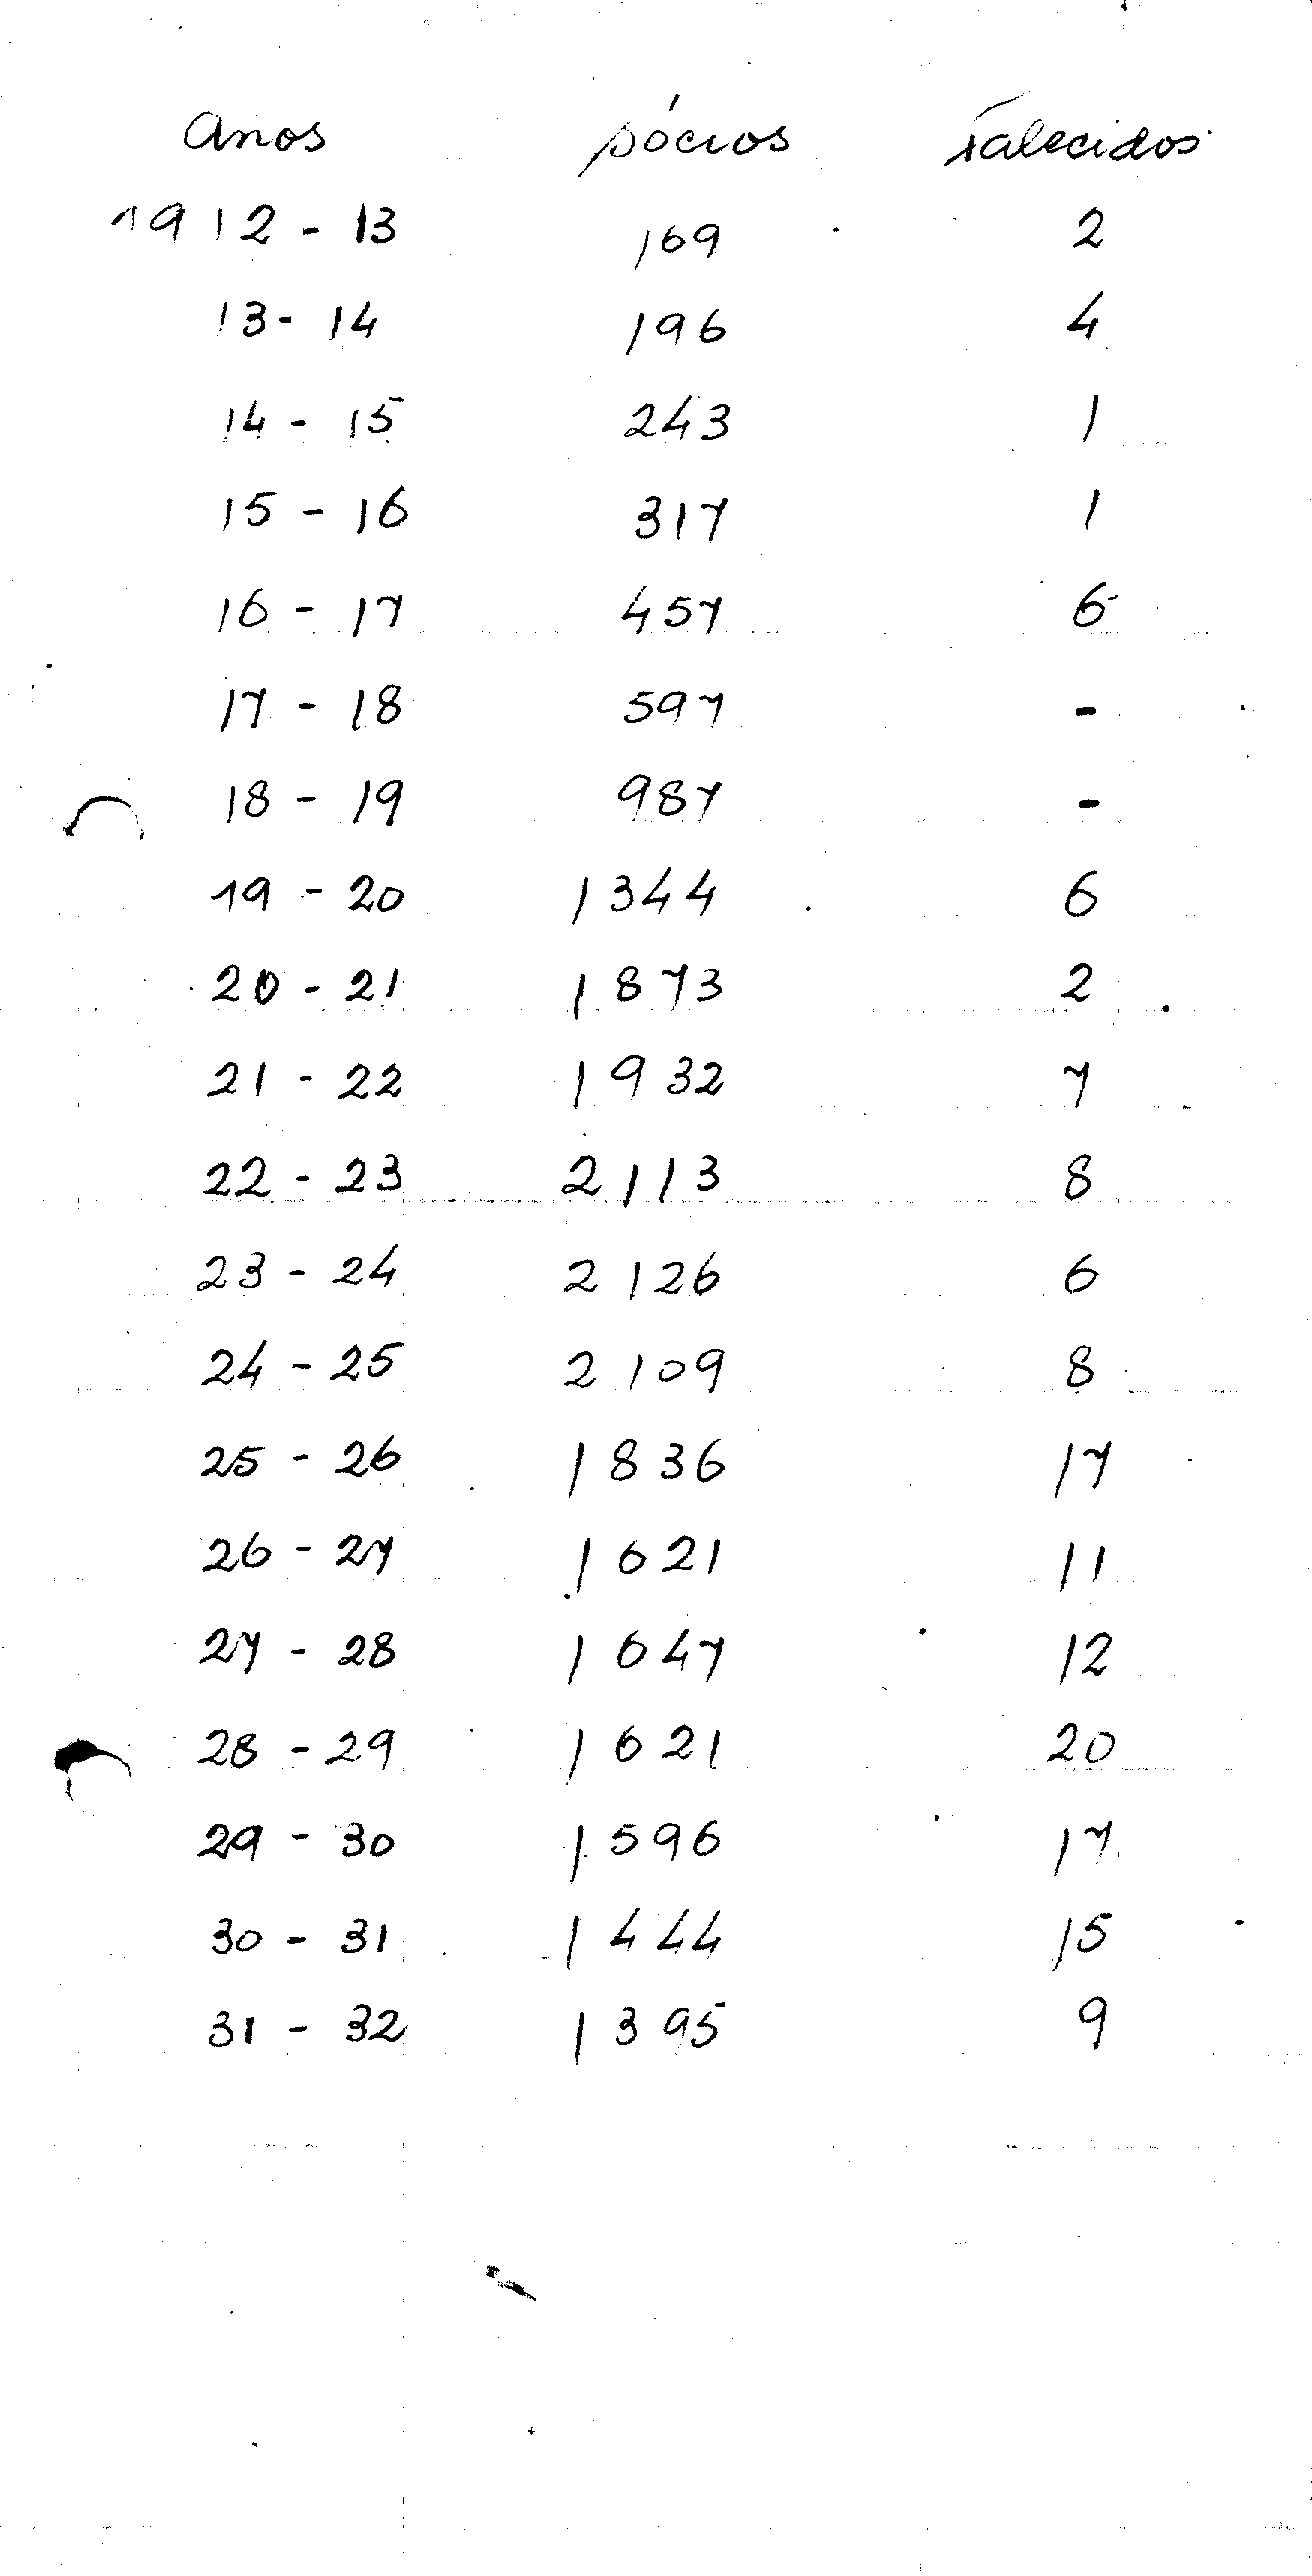 Anos sócios Falecidos
1912 - 13 169 2
13 - 14 196 4
14 - 15 243 1
15 - 16 317 1
16 - 17 457 6
17 - 18 597 -
18 - 19 987 -
19 - 20 1344 6
20 - 21 1873 2
21 - 22 1932 7
22 - 23 2113 8
23 - 24 2126 6
24 - 25 2109 8
25 - 26 1836 17
26 - 27 1621 11
27 - 28 1647 12
28 - 29 1621 20
29 - 30 1596 17
30 - 31 1444 15
31 - 32 1395 9